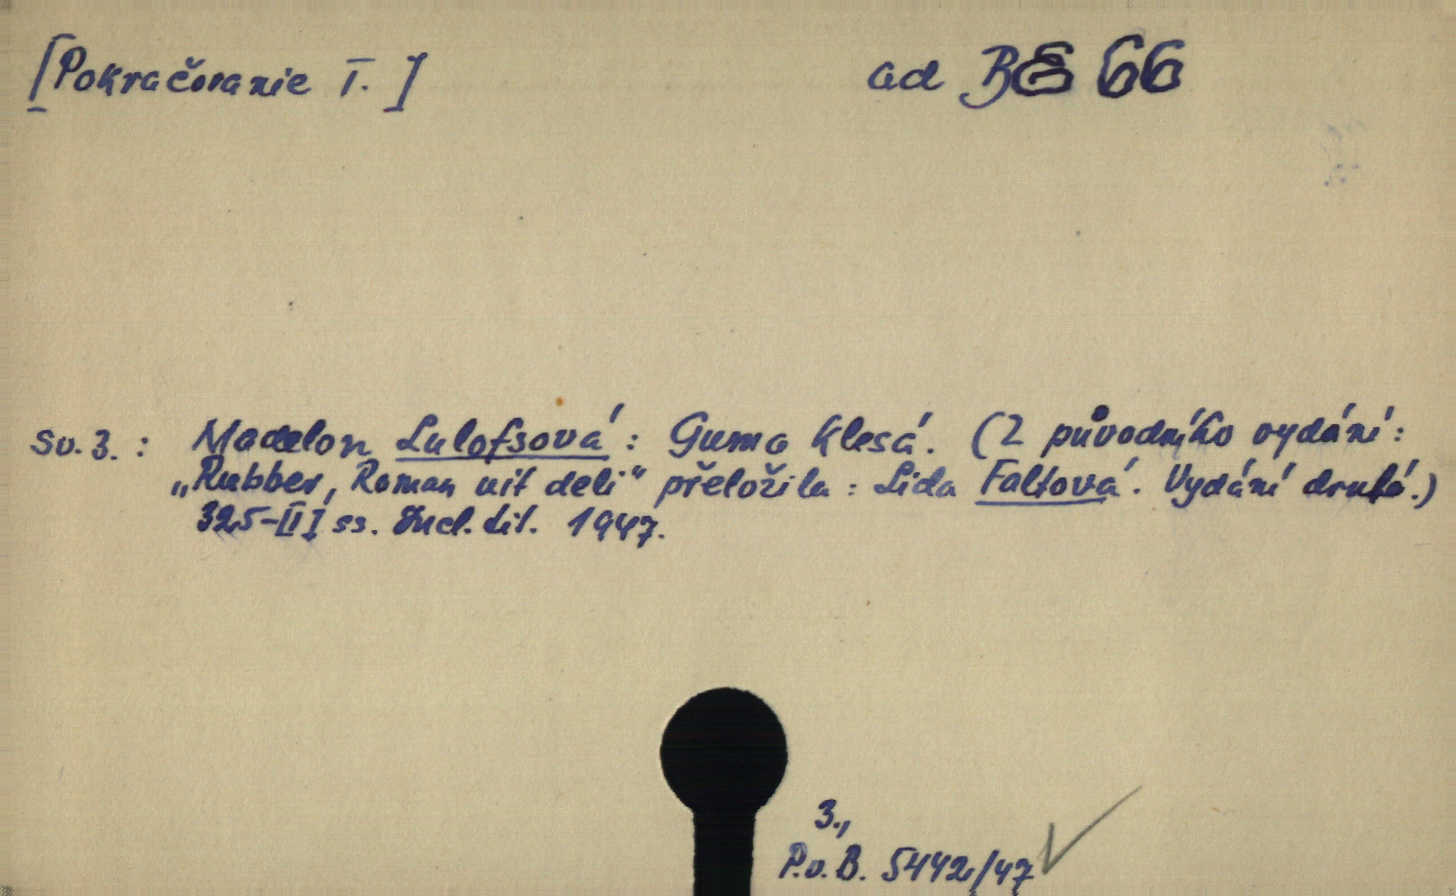 [Pokračovanie I.] ad BE 66
Sv. 3. : Madelon Lulofsová : Guma klesá. (Z původního vydání :
„Rubber, Roman uit deli“ přeložila : Lída Faltová. Vydání druhé.)
325-III ss. Incl. tit. 1947.
3.,
P.v.B. 5442/47